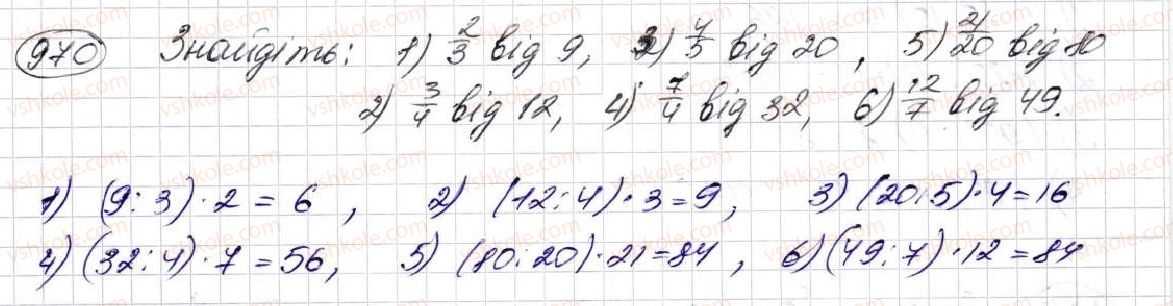 970 Знайдіть: 1) 2/3 від 9, 3) 4/5 від 20, 5) 21/20 від 80
2) 3/4 від 12, 4) 7/4 від 32, 6) 12/7 від 49.
1) (9:3)·2=6, 2) (12:4)·3=9, 3) (20:5)·4=16
4) (32:4)·7=56, 5) (80:20)·21=84, 6) (49:7)·12=84